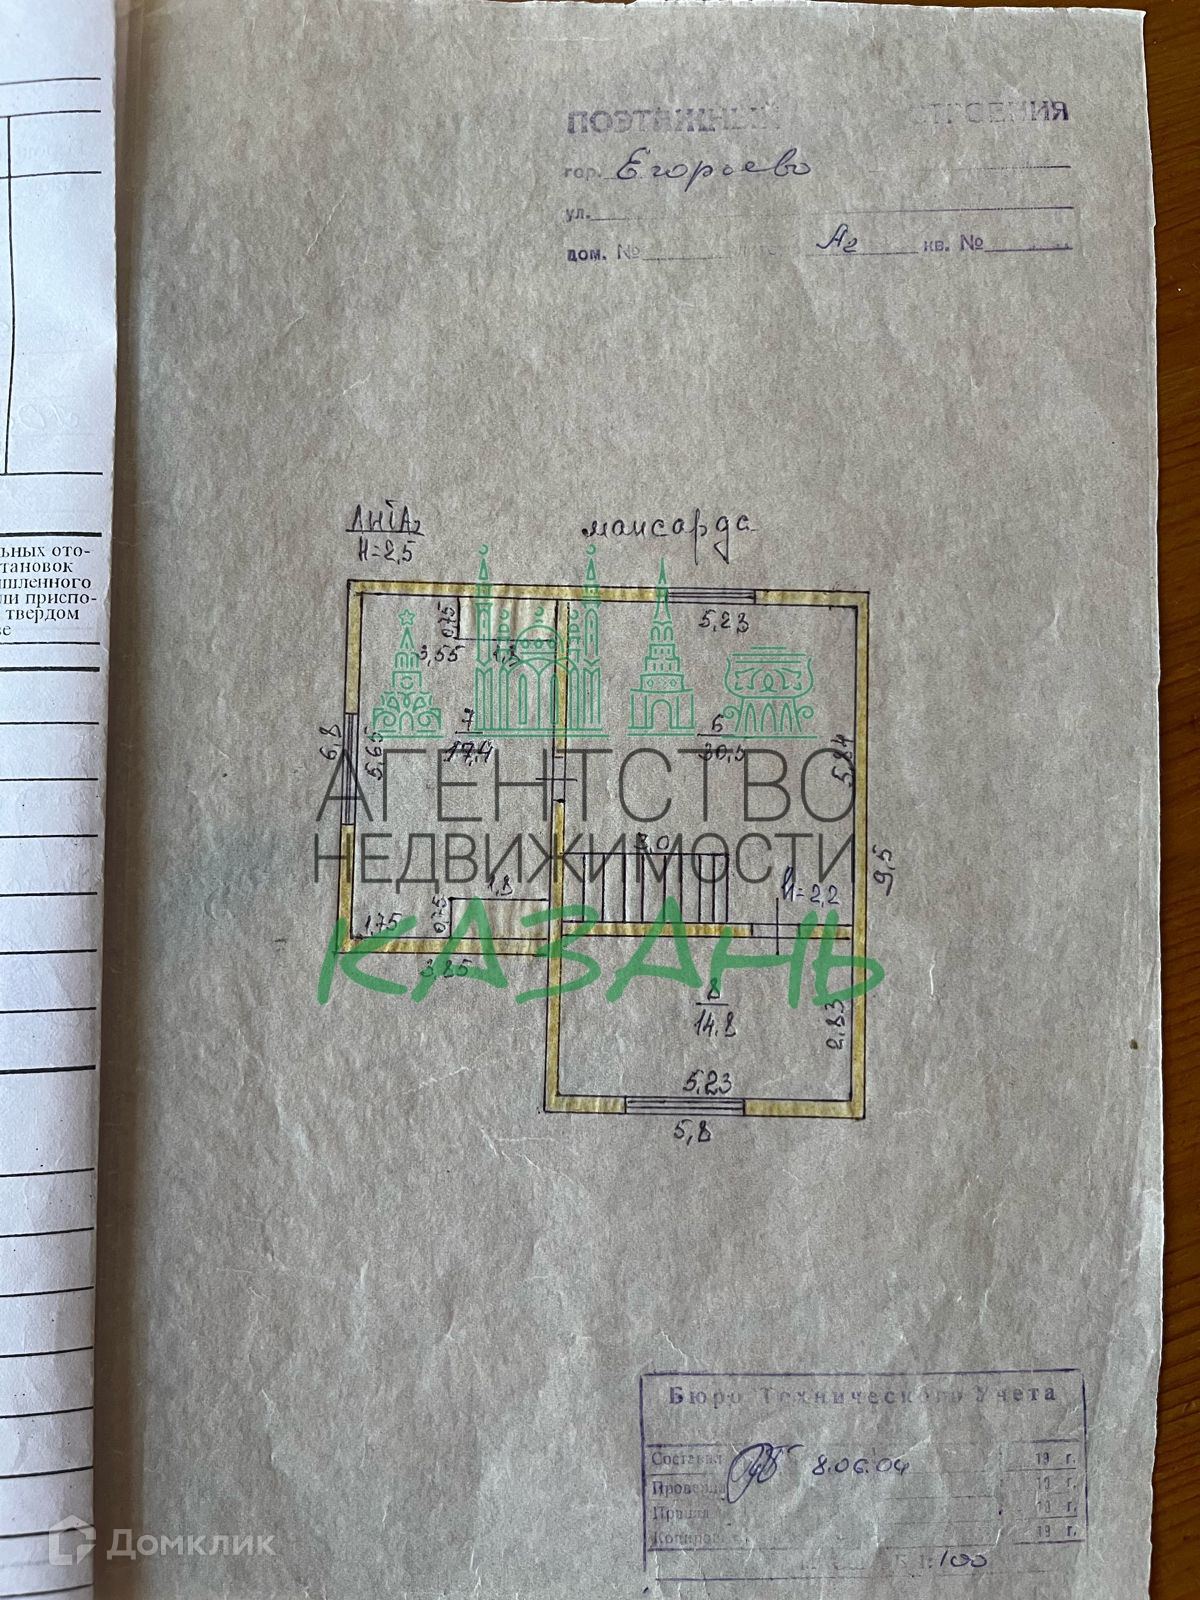 ПОЭТАЖНЫЙ СТРОЕНИЯ
гор. Егорьево
ул.
дом. № А2 кв. №
льных ото-
тановок
ышленного
ли приспо-
твердом
ве
H=2,5
мансарда
5,23
0,75
3,55 1,8
7
17,4
6
30,5
6,8
5,65
5,84
АГЕНТСТВО
НЕДВИЖИМОСТИ
КАЗАНЬ
3,0
9,5
h=2,2
1,8
0,75
1,75
3,85
8
14,8
2,83
5,23
5,8
Бюро Технического Учета
Составил 8.06.04 19 г.
Проверил 19 г.
19 г.
Копировал 19 г.
1:100
Домклик